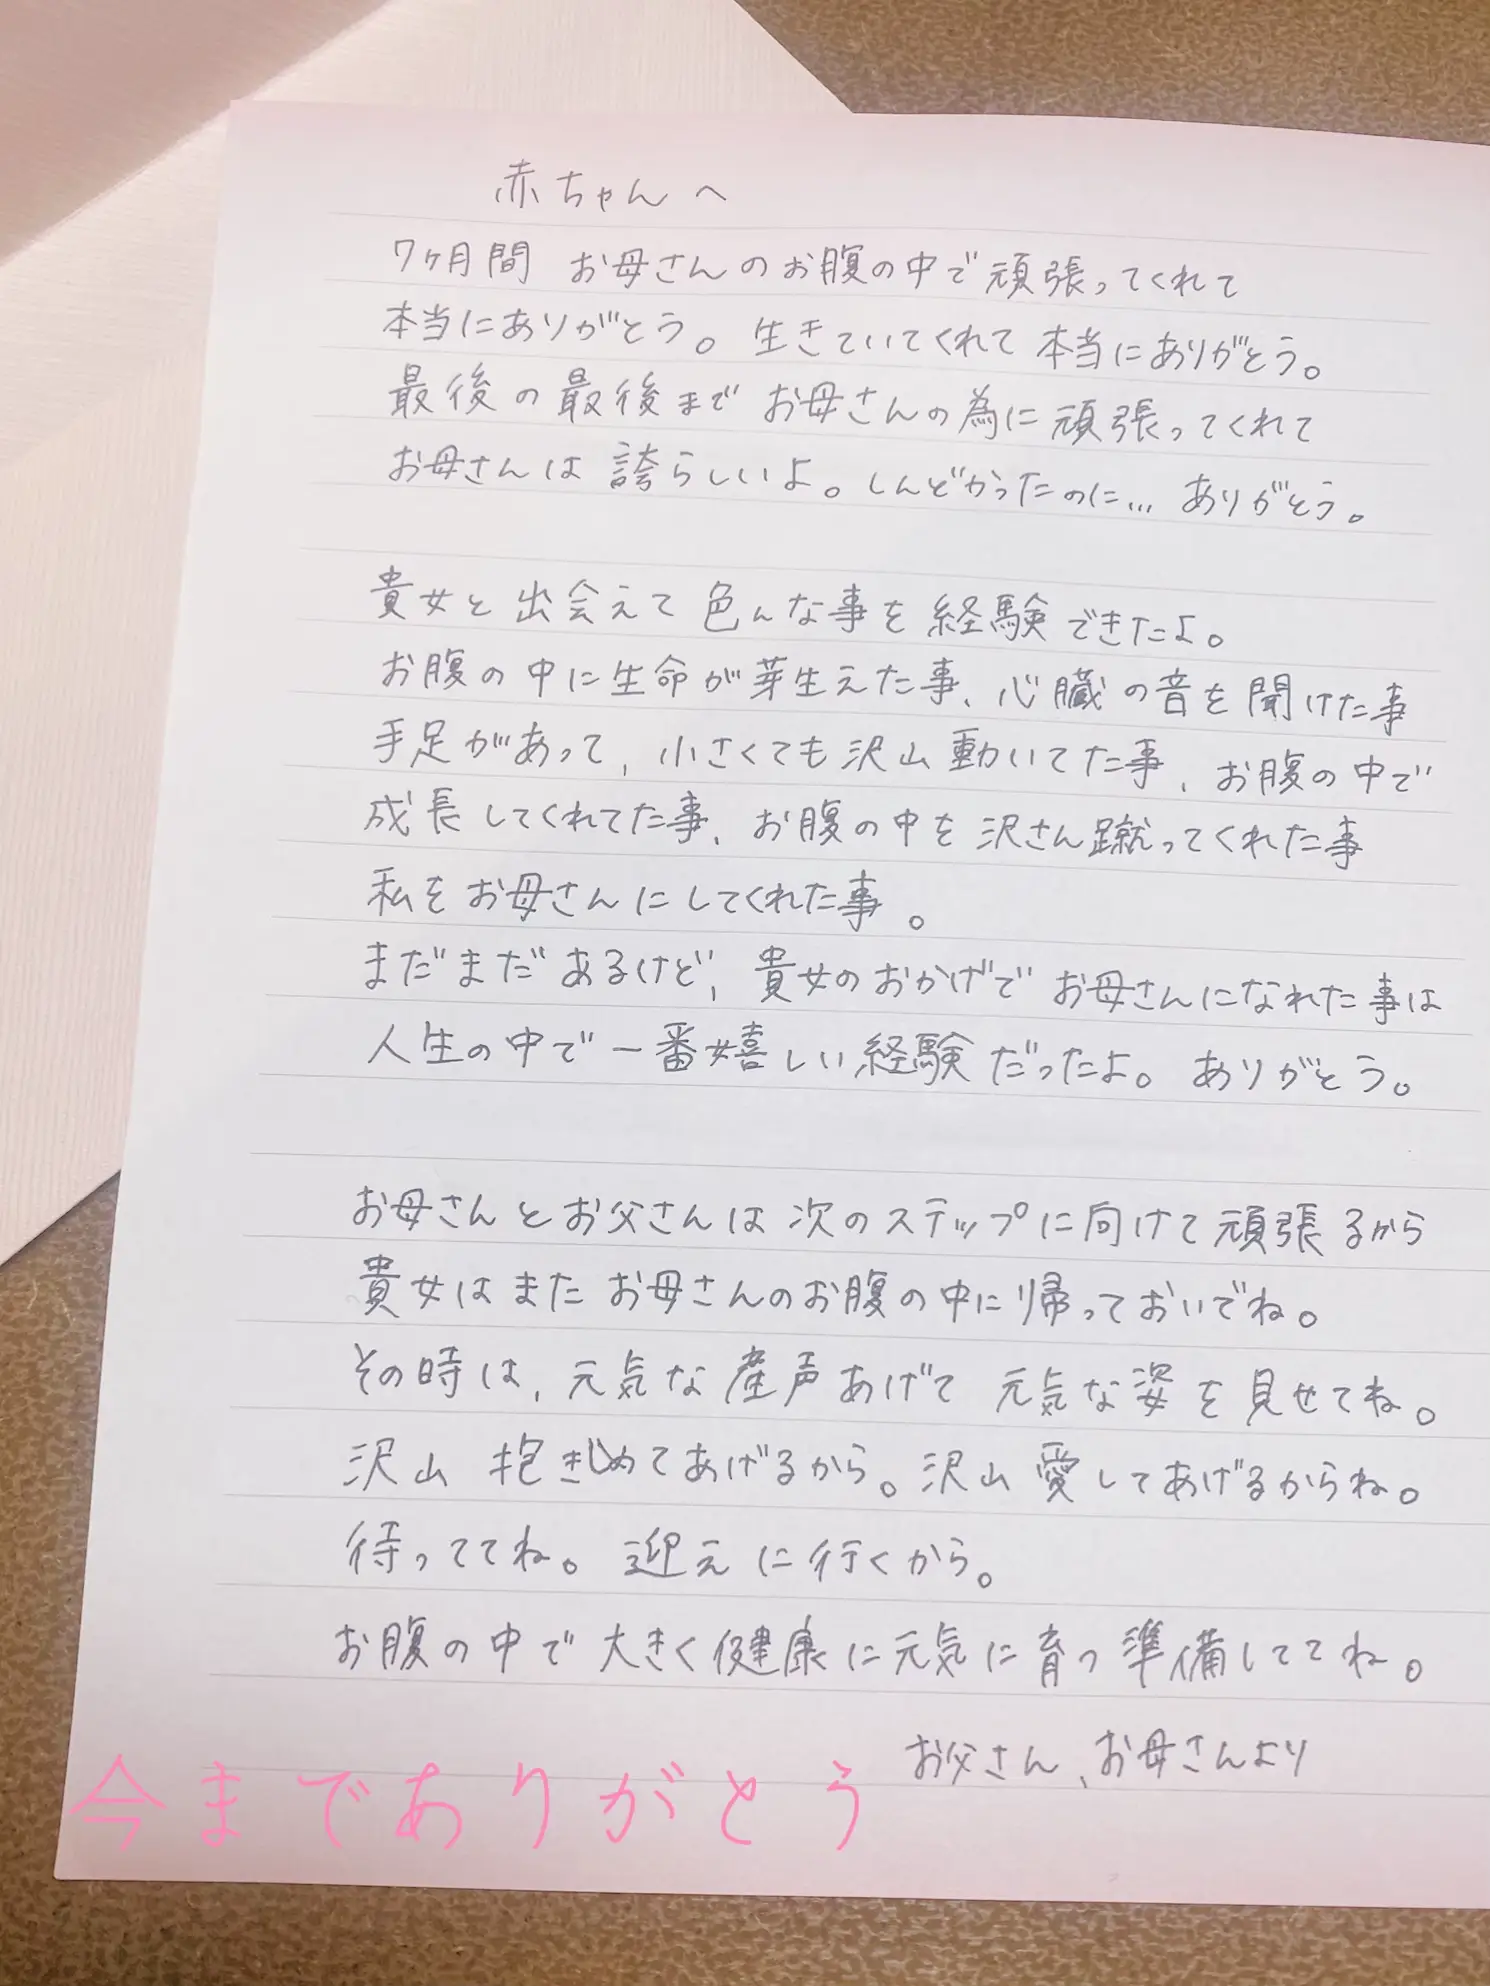 赤ちゃんへ
7ヶ月間 お母さんのお腹の中で頑張ってくれて
本当にありがとう。生きていてくれて本当にありがとう。
最後の最後まで お母さんの為に頑張ってくれて
お母さんは 誇らしいよ。しんどかったのに... ありがとう。
貴女と出会えて色んな事を経験できたよ。
お腹の中に生命が芽生えた事、心臓の音を聞けた事
手足があって、小さくても沢山動いてた事、お腹の中で
成長してくれてた事、お腹の中を沢さん蹴ってくれた事
私をお母さんにしてくれた事。
まだまだあるけど、貴女のおかげでお母さんになれた事は
人生の中で一番嬉しい経験だったよ。ありがとう。
お母さんとお父さんは次のステップに向けて頑張るから
貴女はまたお母さんのお腹の中に帰っておいでね。
その時は、元気な産声あげて元気な姿を見せてね。
沢山 抱きしめてあげるから。沢山愛してあげるからね。
待っててね。迎えに行くから。
お腹の中で大きく健康に元気に育つ準備しててね。
お父さん、お母さんより
今までありがとう